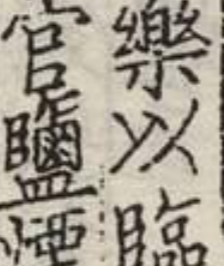 樂以臨
官鹽煙